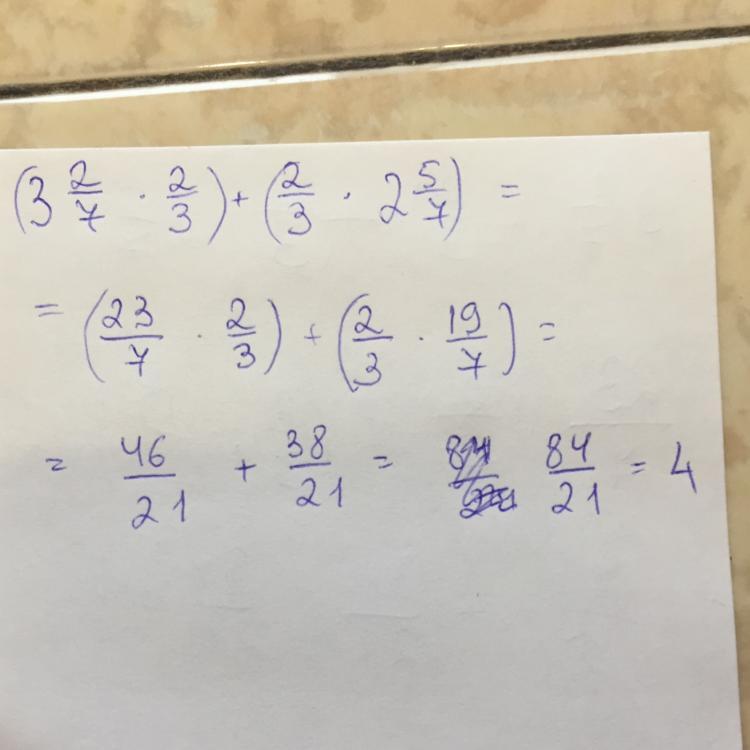 (3 2/7 · 2/3) + (2/3 · 2 5/7) =
= (23/7 · 2/3) + (2/3 · 19/7) =
= 46/21 + 38/21 = 84/21 = 4